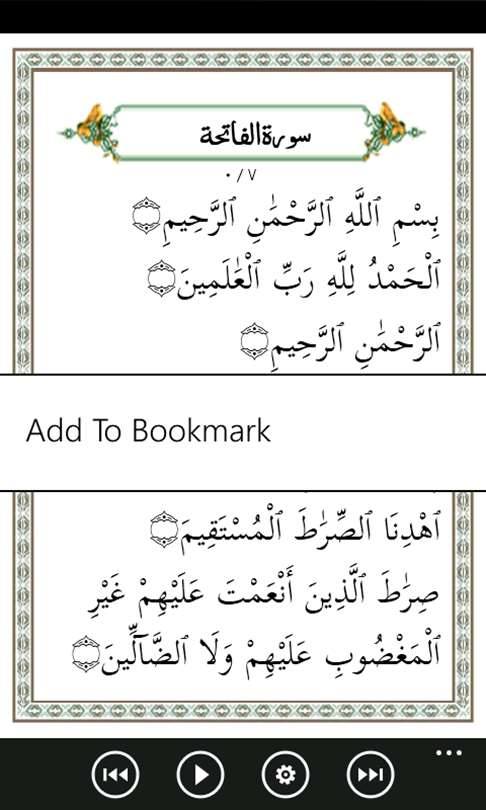 سورة الفاتحة
٠/٧
بِسْمِ ٱللَّهِ ٱلرَّحْمَٰنِ ٱلرَّحِيمِ
ٱلْحَمْدُ لِلَّهِ رَبِّ ٱلْعَٰلَمِينَ
ٱلرَّحْمَٰنِ ٱلرَّحِيمِ
Add To Bookmark
ٱهْدِنَا ٱلصِّرَٰطَ ٱلْمُسْتَقِيمَ
صِرَٰطَ ٱلَّذِينَ أَنْعَمْتَ عَلَيْهِمْ غَيْرِ
ٱلْمَغْضُوبِ عَلَيْهِمْ وَلَا ٱلضَّآلِّينَ